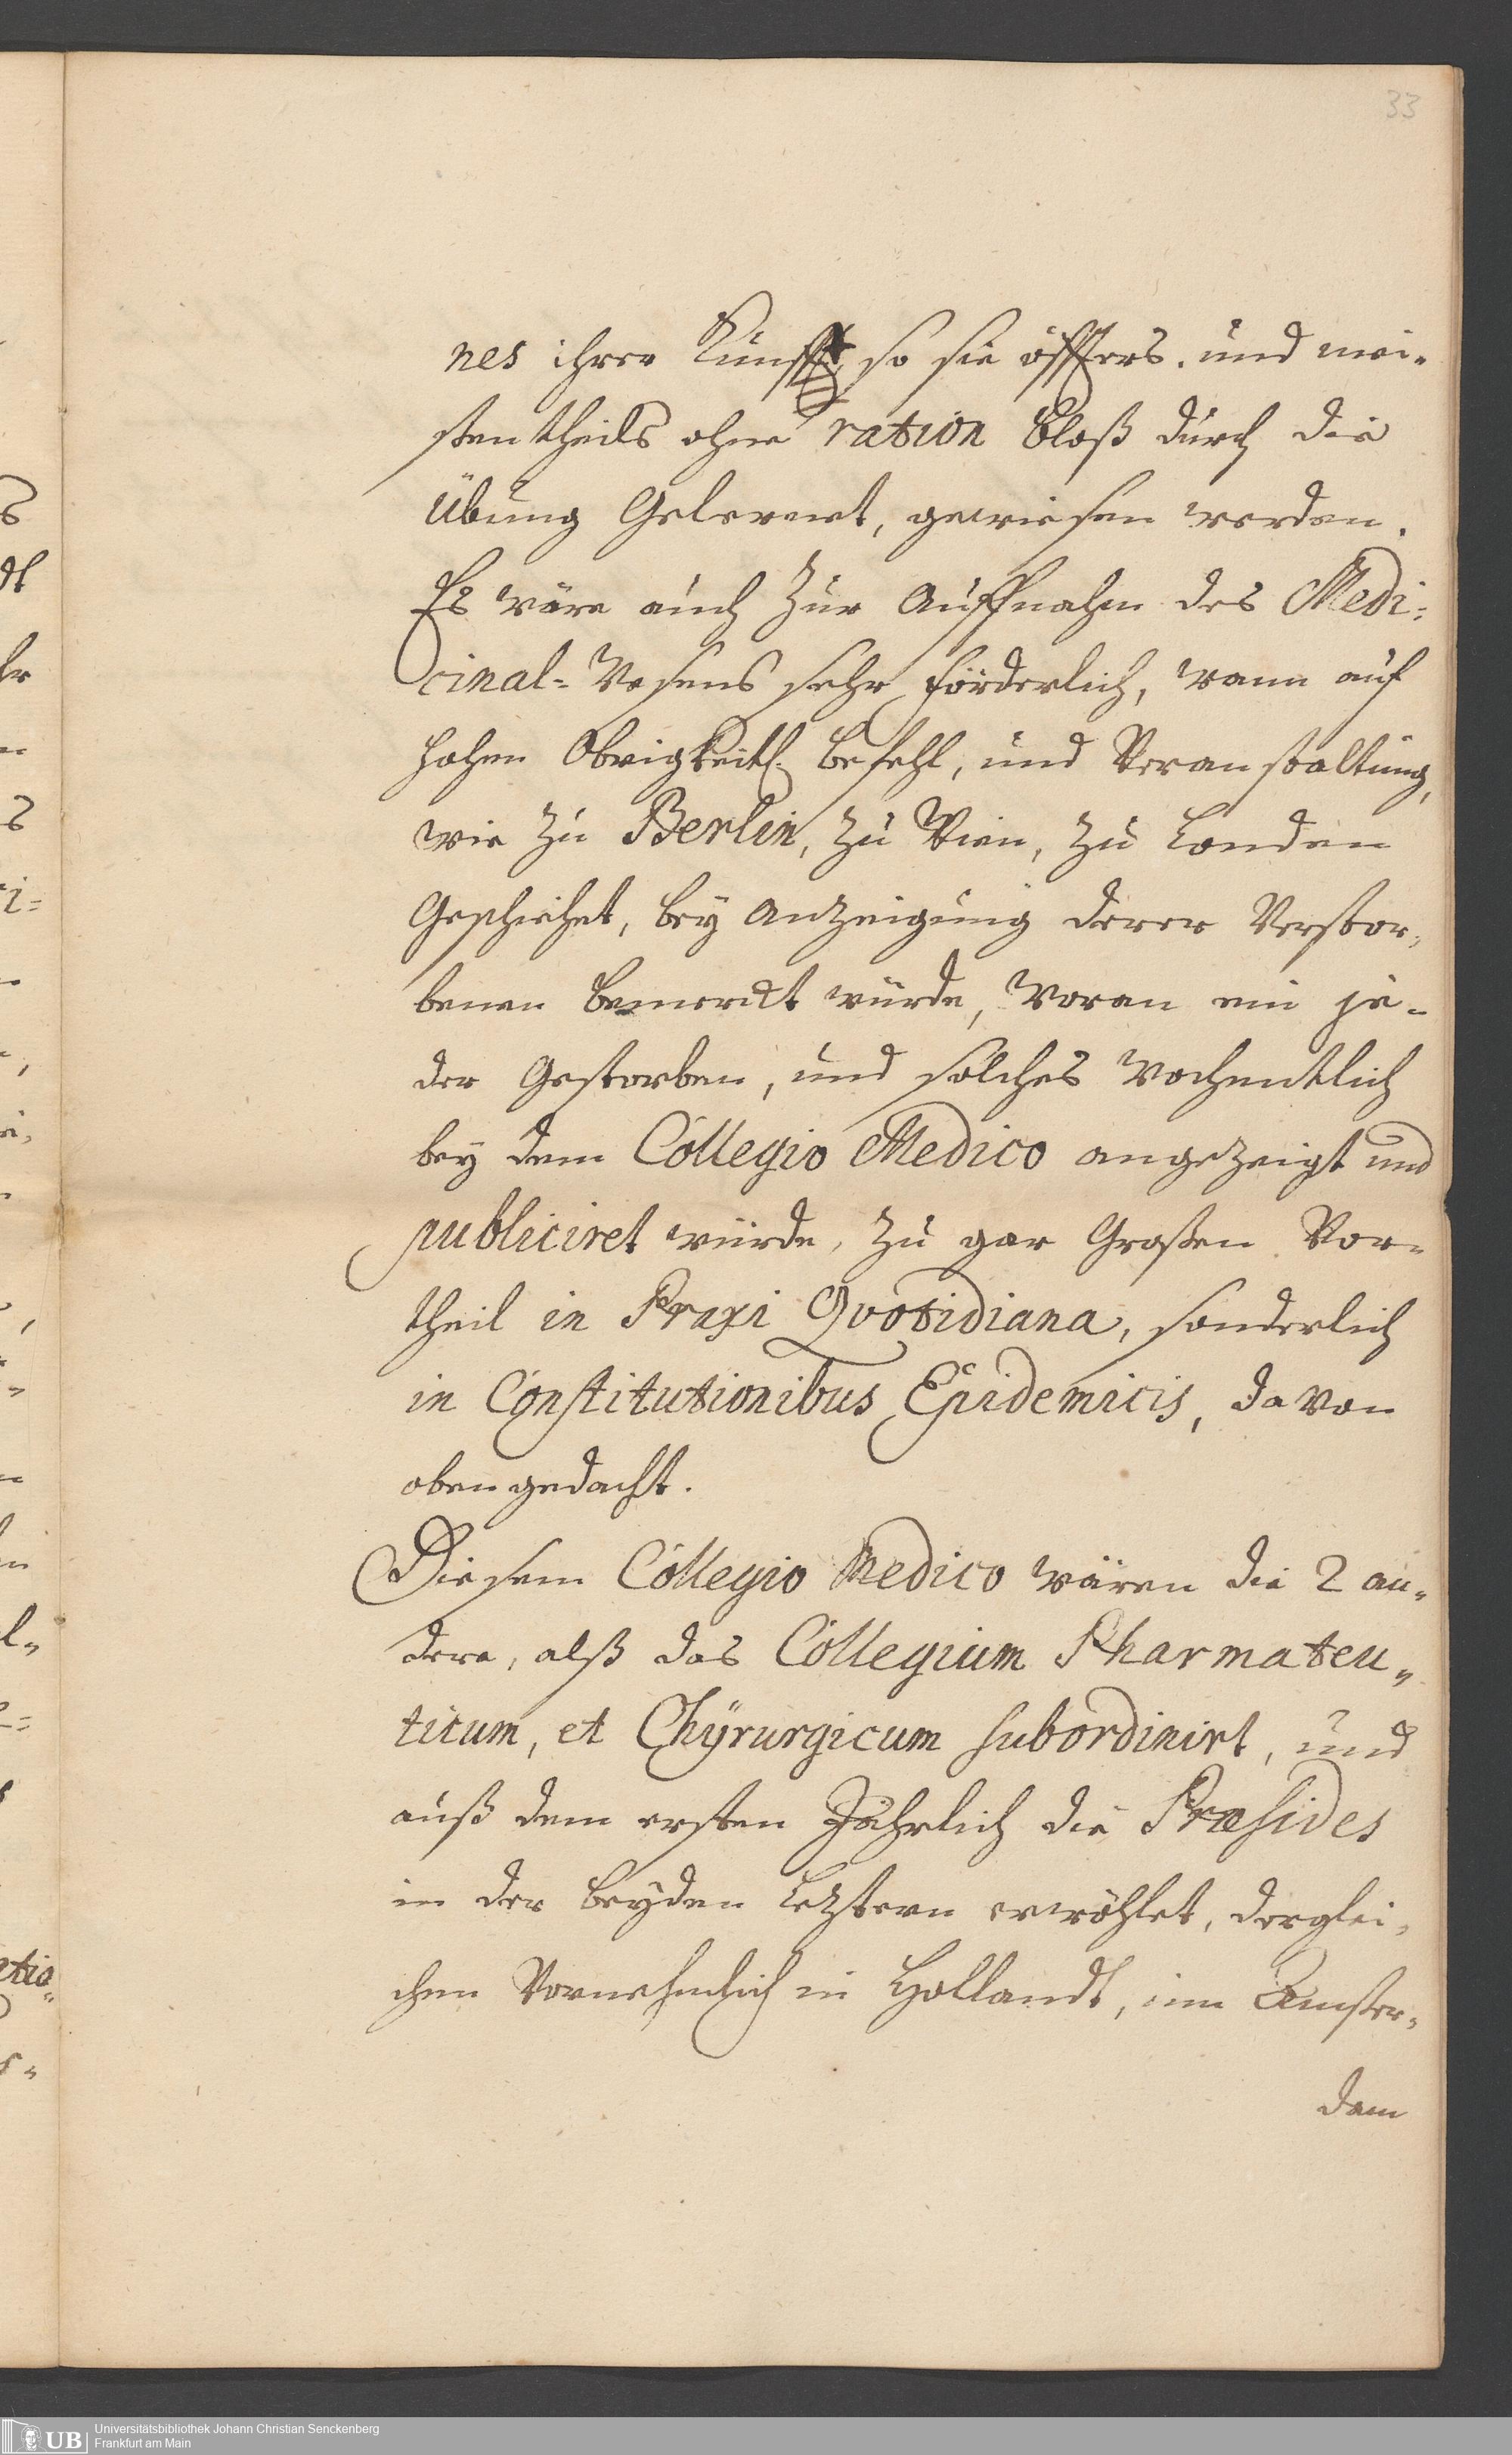 33
nes ihrer Kunst, so sie öffters. und mei-
stentheils ohne ration bloß durch die
Übung Gelernet, gewiesen werden.
Es wäre auch zur Auffnahm des Medi-
cinal-Wesens sehr förderlich, wann auf
hohen Obrigkeitl. Befehl, und Veranstaltung,
wie zu Berlin, zu Wien, zu Londen
Geschiehet, bey Anzeigung derer Verstor-
benen bemerckt würde, Woran ein je-
der Gestorben, und solches Wochentlich
bey dem Collegio Medico angezeigt und
publiciret würde, zu gar Großen Vor-
theil in Praxi Qvotidiana, sonderlich
in Constitutionibus Epidemicis, davon
oben gedacht.
Diesem Collegio Medico wären die 2 an-
dere, alß das Collegium Pharmateu-
ticum, et Chÿrurgicum subordinirt, und
auß dem ersten Jährlich die Præsides
in der beyden Letztern erwöhlet, derglei-
chen Vornehmlich in Hollandt, inn Amster-
dam
Universitätsbibliothek Johann Christian Senckenberg
Frankfurt am Main
UB